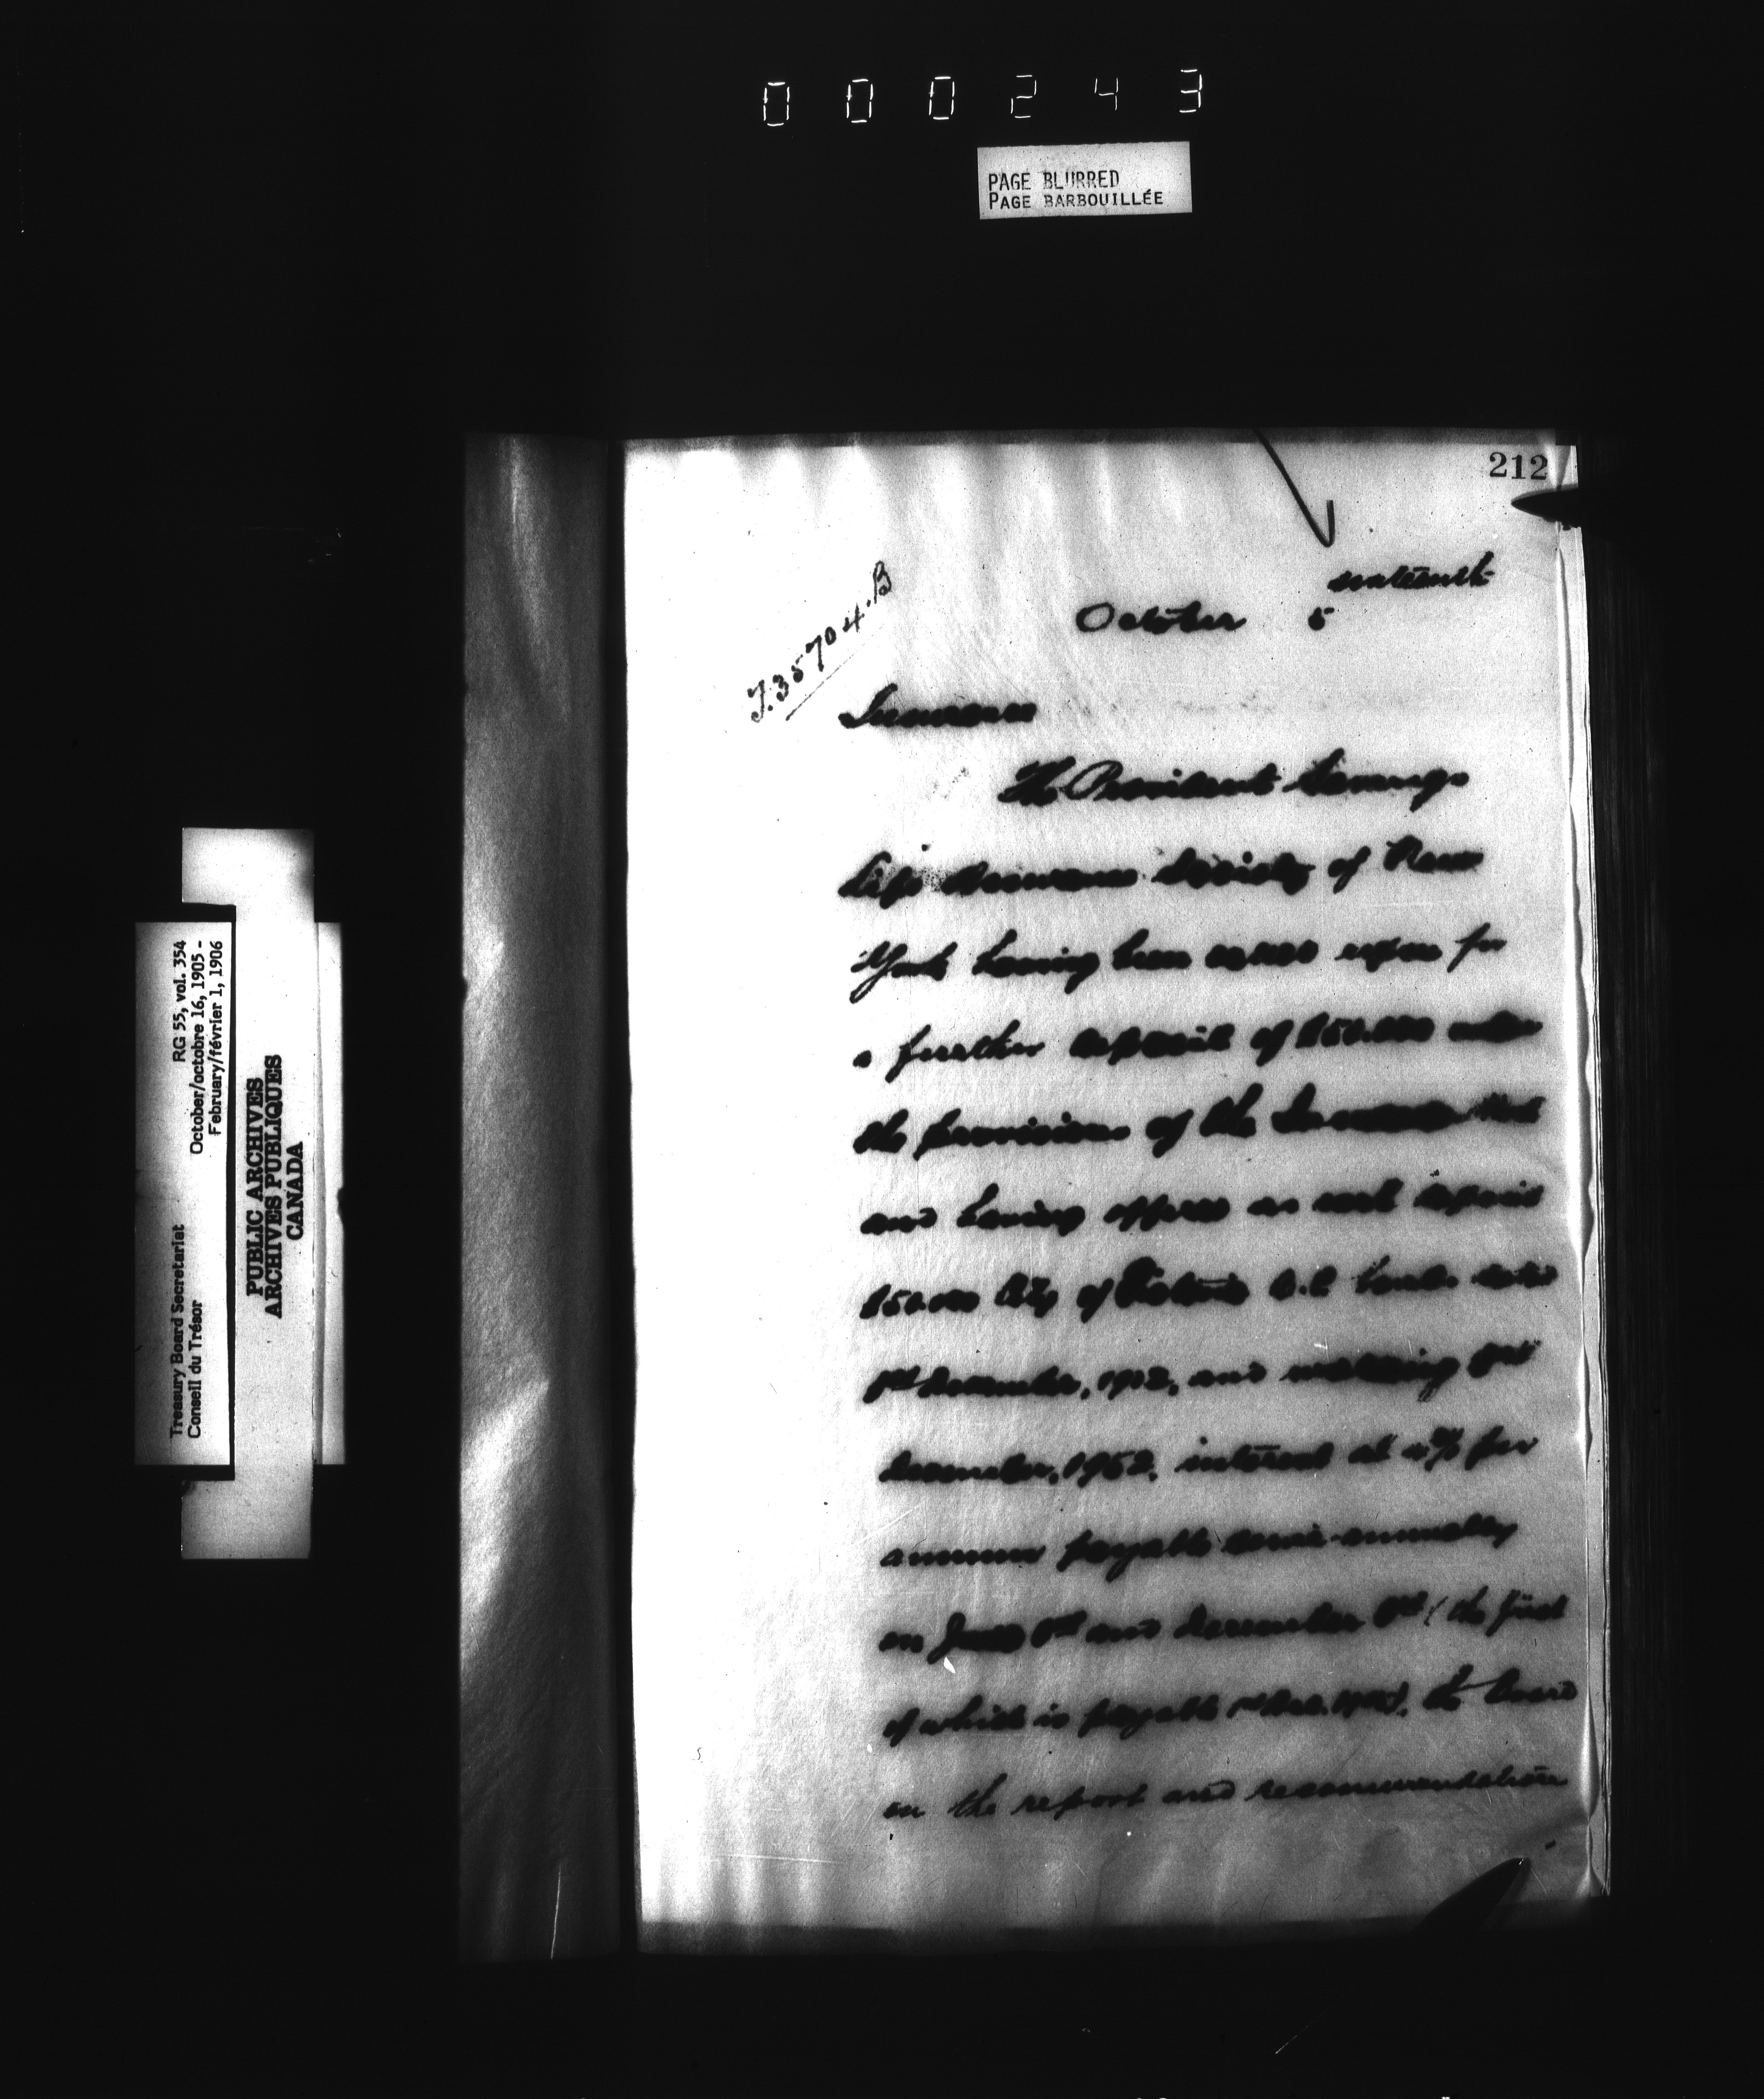 000243
PAGE BLURRED
PAGE BARBOUILLÉE
212
sixteenth
October 5
T.35704.B
Insurance
The Provident Savings
Life Assurance Society of New
York having been called upon for
a further deposit of $50.000 under
the provisions of the Insurance Act
and having offered as such deposit
$50.000 City of Victoria B.C. bonds dated
1st December, 1902, and maturing 1st
December, 1952, interest at 4% per
annum payable semi-annually
on June 1st and December 1st (the first
of which is payable 1st Dec. 1905), the Board
on the report and recommendation
Treasury Board Secretariat RG 55, vol. 354
Conseil du Trésor October/octobre 16, 1905 -
February/février 1, 1906
PUBLIC ARCHIVES
ARCHIVES PUBLIQUES
CANADA